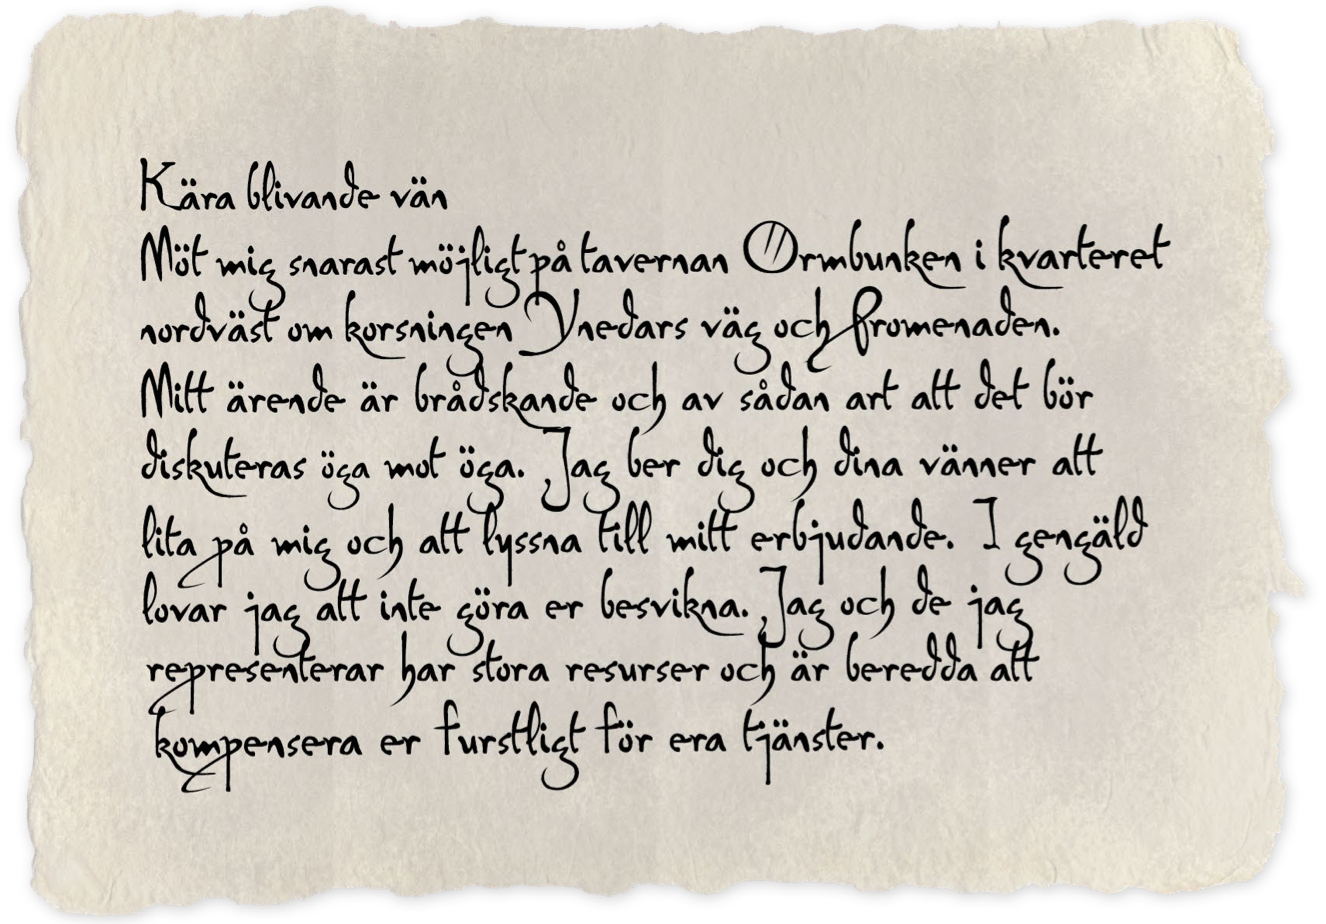 Kära blivande vän
Möt mig snarast möjligt på tavernan Ormbunken i kvarteret
nordväst om korsningen Ynedars väg och Promenaden.
Mitt ärende är brådskande och av sådan art att det bör
diskuteras öga mot öga. Jag ber dig och dina vänner att
lita på mig och att lyssna till mitt erbjudande. I gengäld
lovar jag att inte göra er besvikna. Jag och de jag
representerar har stora resurser och är beredda att
kompensera er furstligt för era tjänster.